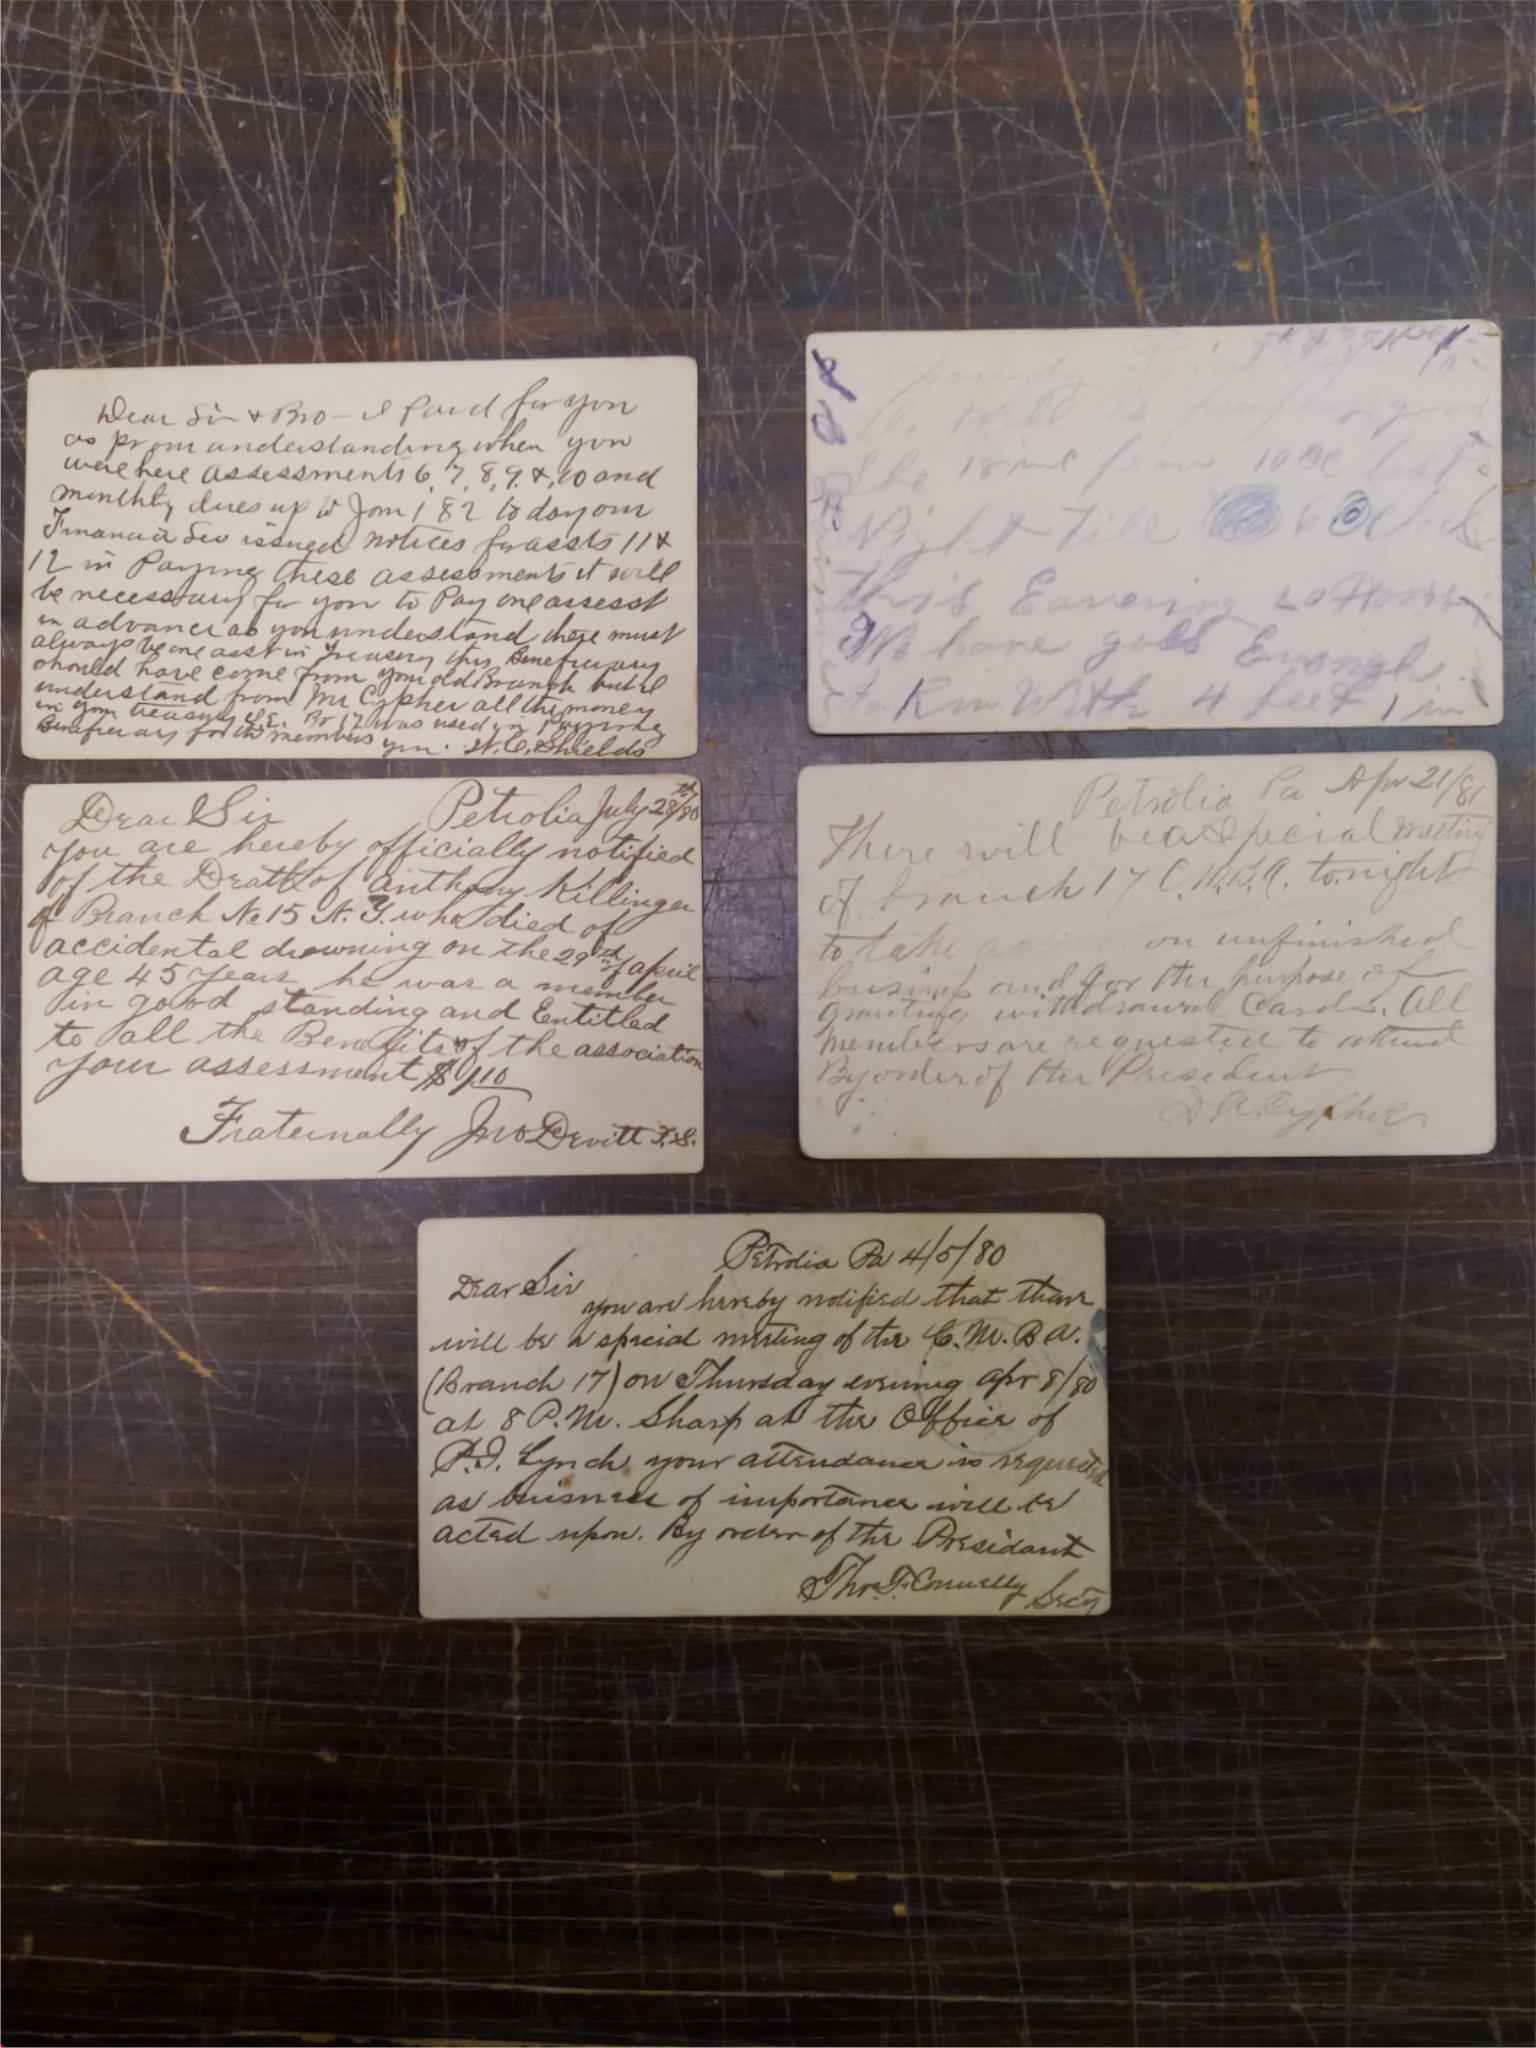 Dear Sir & Bro - I Paid for you
as pr our understanding when you
were here assessments 6, 7, 8, 9, &, 10 and
monthly dues up to Jan 1 82 to day our
Financial Sec issued notices for assts 11 &
12 in Paying these assessments it will
be necessary for you to Pay one assesst
in advance as you understand there must
always be one asst in Treasury this Beneficiary
should have come from your old Branch but I
understand from Mr Cypher all the money
in your treasury Br 17 was used in Paying
Beneficiary for members W. C. Shields
Dear Sir Petrolia July 28th/80
you are hereby officially notified
of the Death of Anthony Killinger
of Branch No 15 N. Y. who died of
accidental drowning on the 29th of april
age 45 years he was a member
in good standing and Entitled
to all the Benefits of the association
your assessment $1.10
Fraternally Jno Devitt F.S.
Night till 6 O Clock
this Evening 20 Hours
We have got Enough
to Run With 4 feet 1 in
Petrolia Pa Apr 21/81
There will be a Special meeting
of branch 17 C.M.B.A. tonight
to take on unfinished
business and for the purpose of
granting withdrawal Cards. All
members are requested to attend
By order of the President
D. A. Cypher
Petrolia Pa 4/5/80
Dear Sir
you are hereby notified that thare
will be a special meeting of the C. M. B A.
(Branch 17) on Thursday evening Apr 8/80
at 8 P.M. Sharp at the Office of
P. J. Lynch your attendance is requested
as buisness of importance will be
acted upon. By order of the Presidant
Thos. F. Connelly Secy